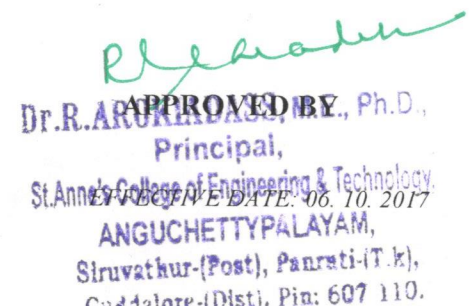 APPROVED BY
Dr.R.AROKIADASS, M.E., Ph.D.,
Principal,
St.Anne's College of Engineering & Technology.
EFFECTIVE DATE: 06. 10. 2017
ANGUCHETTYPALAYAM,
Siruvathur-(Post), Panruti-(T.k),
Cuddalore-(Dist), Pin: 607 110.